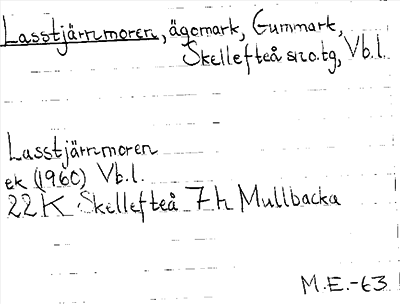 Lasstjärnmoren, ägomark, Gummark,
Skellefteå sn o. tg, Vb.l.
Lasstjärnmoren
ek (1960) Vb.l.
22K Skellefteå 7h Mullbacka
M.E.-63